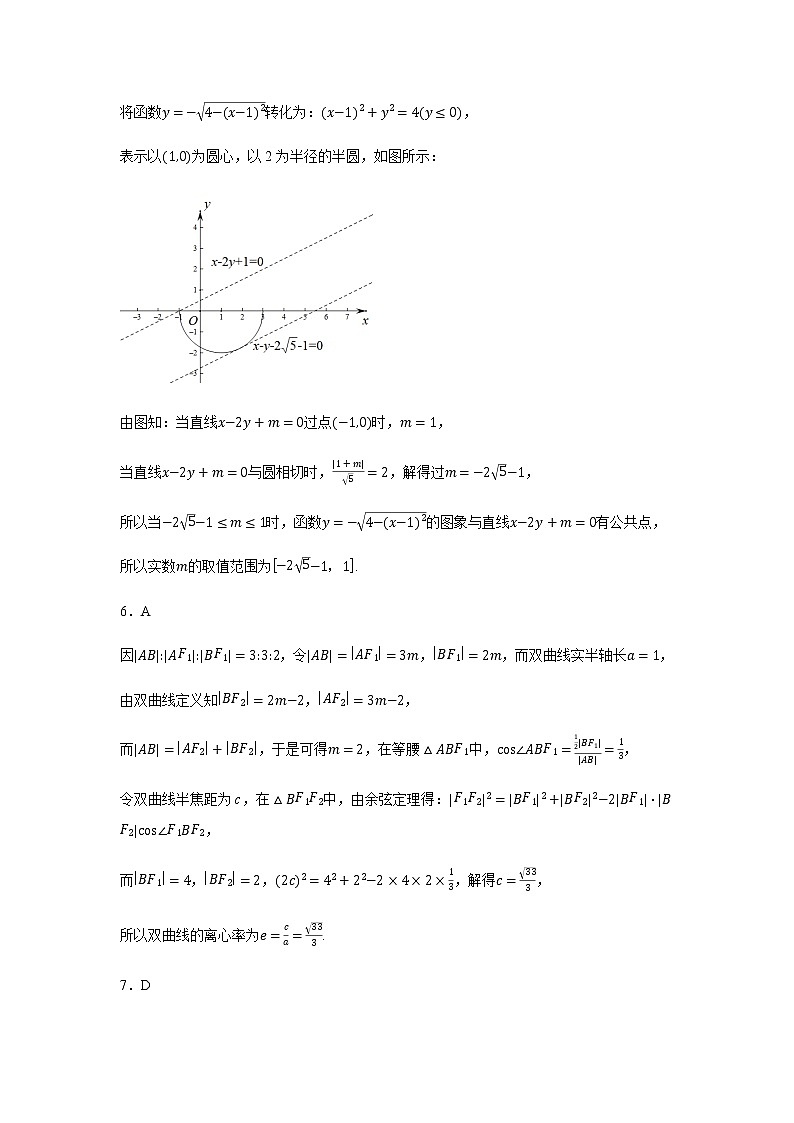 将函数y=−√4−(x−1)²转化为：(x−1)²+y²=4(y≤0)，
表示以(1,0)为圆心，以 2 为半径的半圆，如图所示：
y
4
3
x-2y+1=0
2
1
−3 −2 −1 O 1 2 3 4 5 6 7 x
−1
−2
x-y-2√5-1=0
−3
由图知：当直线x−2y+m=0过点(−1,0)时，m=1，
当直线x−2y+m=0与圆相切时，|1+m|/√5=2，解得过m=−2√5−1，
所以当−2√5−1≤m≤1时，函数y=−√4−(x−1)²的图象与直线x−2y+m=0有公共点，
所以实数m的取值范围为[−2√5−1，1].
6．A
因|AB|:|AF₁|:|BF₁|=3:3:2，令|AB|=|AF₁|=3m，|BF₁|=2m，而双曲线实半轴长a=1，
由双曲线定义知|BF₂|=2m−2，|AF₂|=3m−2，
而|AB|=|AF₂|+|BF₂|，于是可得m=2，在等腰△ABF₁中，cos∠ABF₁=½|BF₁|/|AB|=1/3，
令双曲线半焦距为 c，在△BF₁F₂中，由余弦定理得：|F₁F₂|²=|BF₁|²+|BF₂|²−2|BF₁|·|B
F₂|cos∠F₁BF₂，
而|BF₁|=4，|BF₂|=2，(2c)²=4²+2²−2×4×2×1/3，解得c=√33/3，
所以双曲线的离心率为e=c/a=√33/3.
7．D